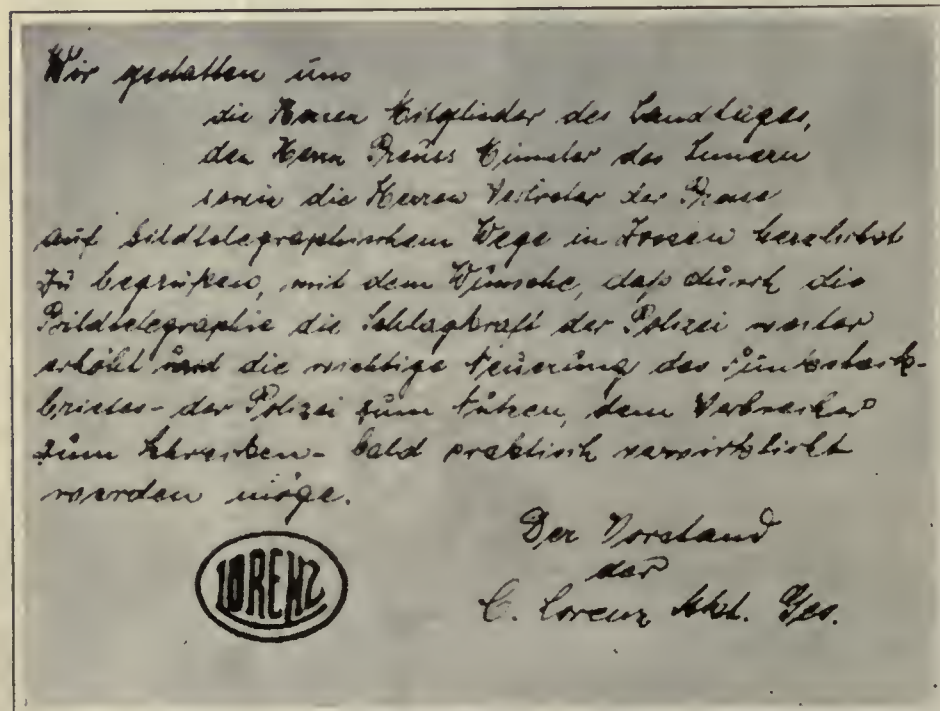 Wir gestatten uns
die Herren Mitglieder des Landtages,
den Herrn Preuss Minister des Innern
sowie die Herren Vertreter der Presse
auf bildtelegraphischem Wege in Zossen herzlichst
zu begrüßen, mit dem Wunsche, daß durch die
Bildtelegraphie die Schlagkraft der Polizei weiter
erhöht und die wichtige Neuerung des Funksteck-
briefes - der Polizei zum Nutzen, dem Verbrecher
zum Schrecken - bald praktisch verwirklicht
werden möge.
Der Vorstand
der
C. Lorenz Akt. Ges.
LORENZ